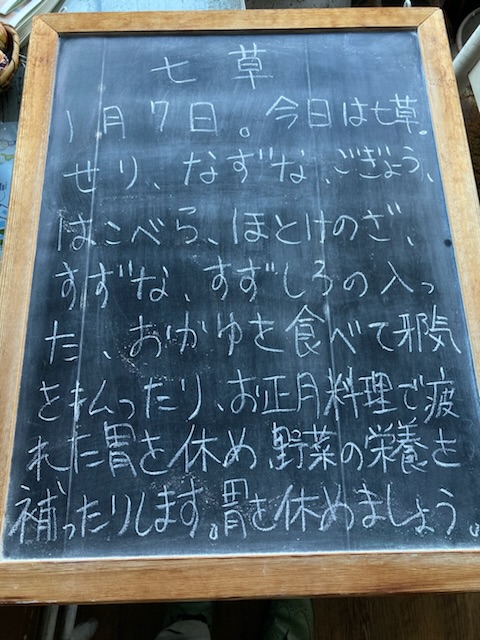 七草
1月7日。今日は七草。
せり、なずな、ごぎょう、
はこべら、ほとけのざ、
すずな、すずしろの入っ
た、おかゆを食べて邪気
を払ったり、お正月料理で疲
れた胃を休め、野菜の栄養を
補ったりします。胃を休めましょう。